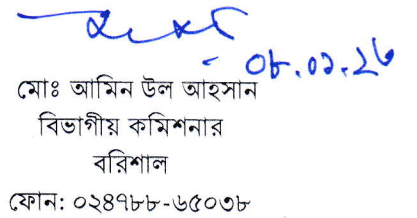 ০৮.০১.২৬
মোঃ আমিন উল আহসান
বিভাগীয় কমিশনার
বরিশাল
ফোন: ০২৪৭৮৮-৬৫০৩৮